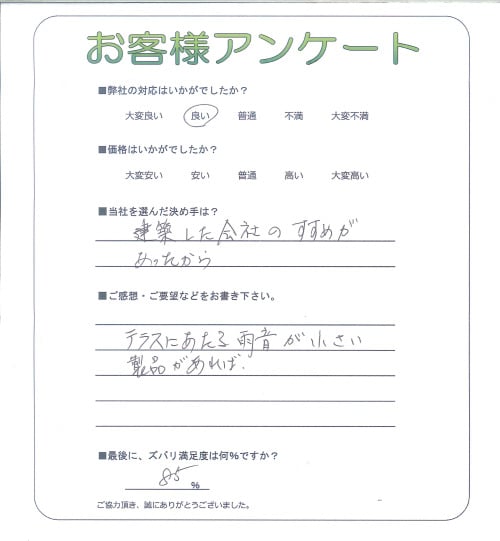 お客様アンケート
■弊社の対応はいかがでしたか？
大変良い 良い 普通 不満 大変不満
■価格はいかがでしたか？
大変安い 安い 普通 高い 大変高い
■当社を選んだ決め手は？
建築した会社のすすめが
あったから
■ご感想・ご要望などをお書き下さい。
テラスにあたる雨音が小さい
製品があれば.
■最後に、ズバリ満足度は何%ですか？
85 %
ご協力頂き、誠にありがとうございました。